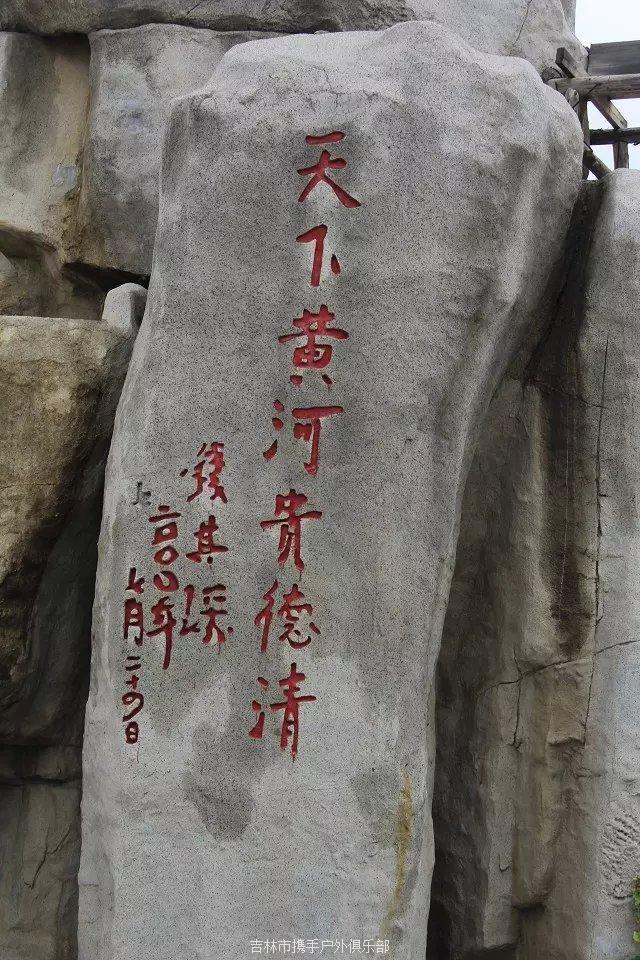 天下黄河贵德清
钱其琛
二〇〇〇年
七月二十四日
吉林市携手户外俱乐部